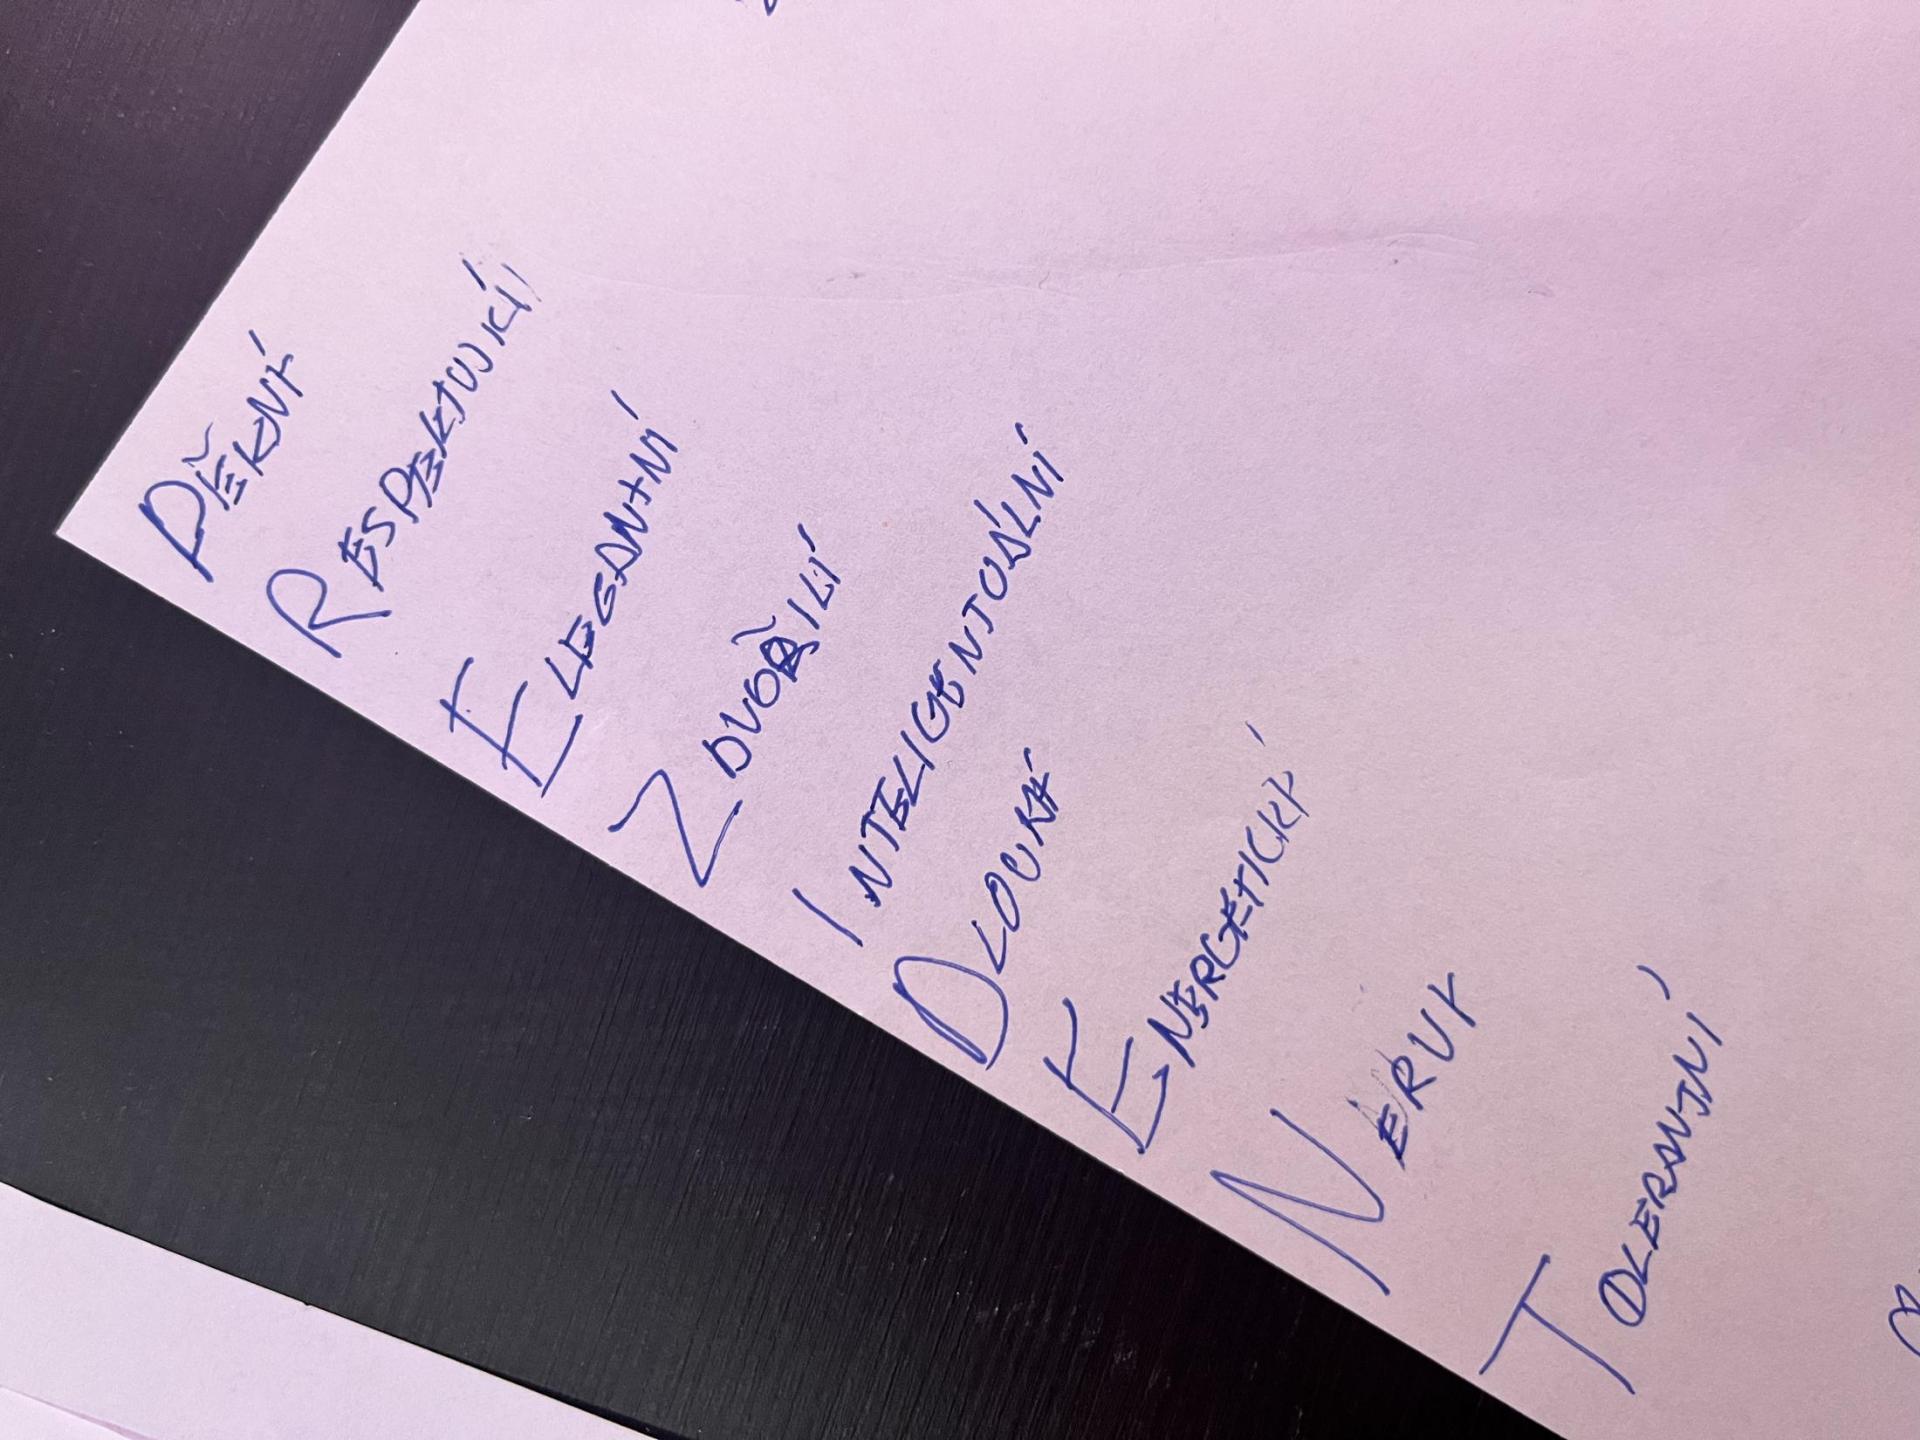 PĚKNÝ
RESPEKTUJÍCÍ
ELEGANTNÍ
ZDVOŘILÍ
INTELIGENTUÁLNÍ
DLOUHÝ
ENERGETICKÝ
NERVY
TOLERANTNÍ